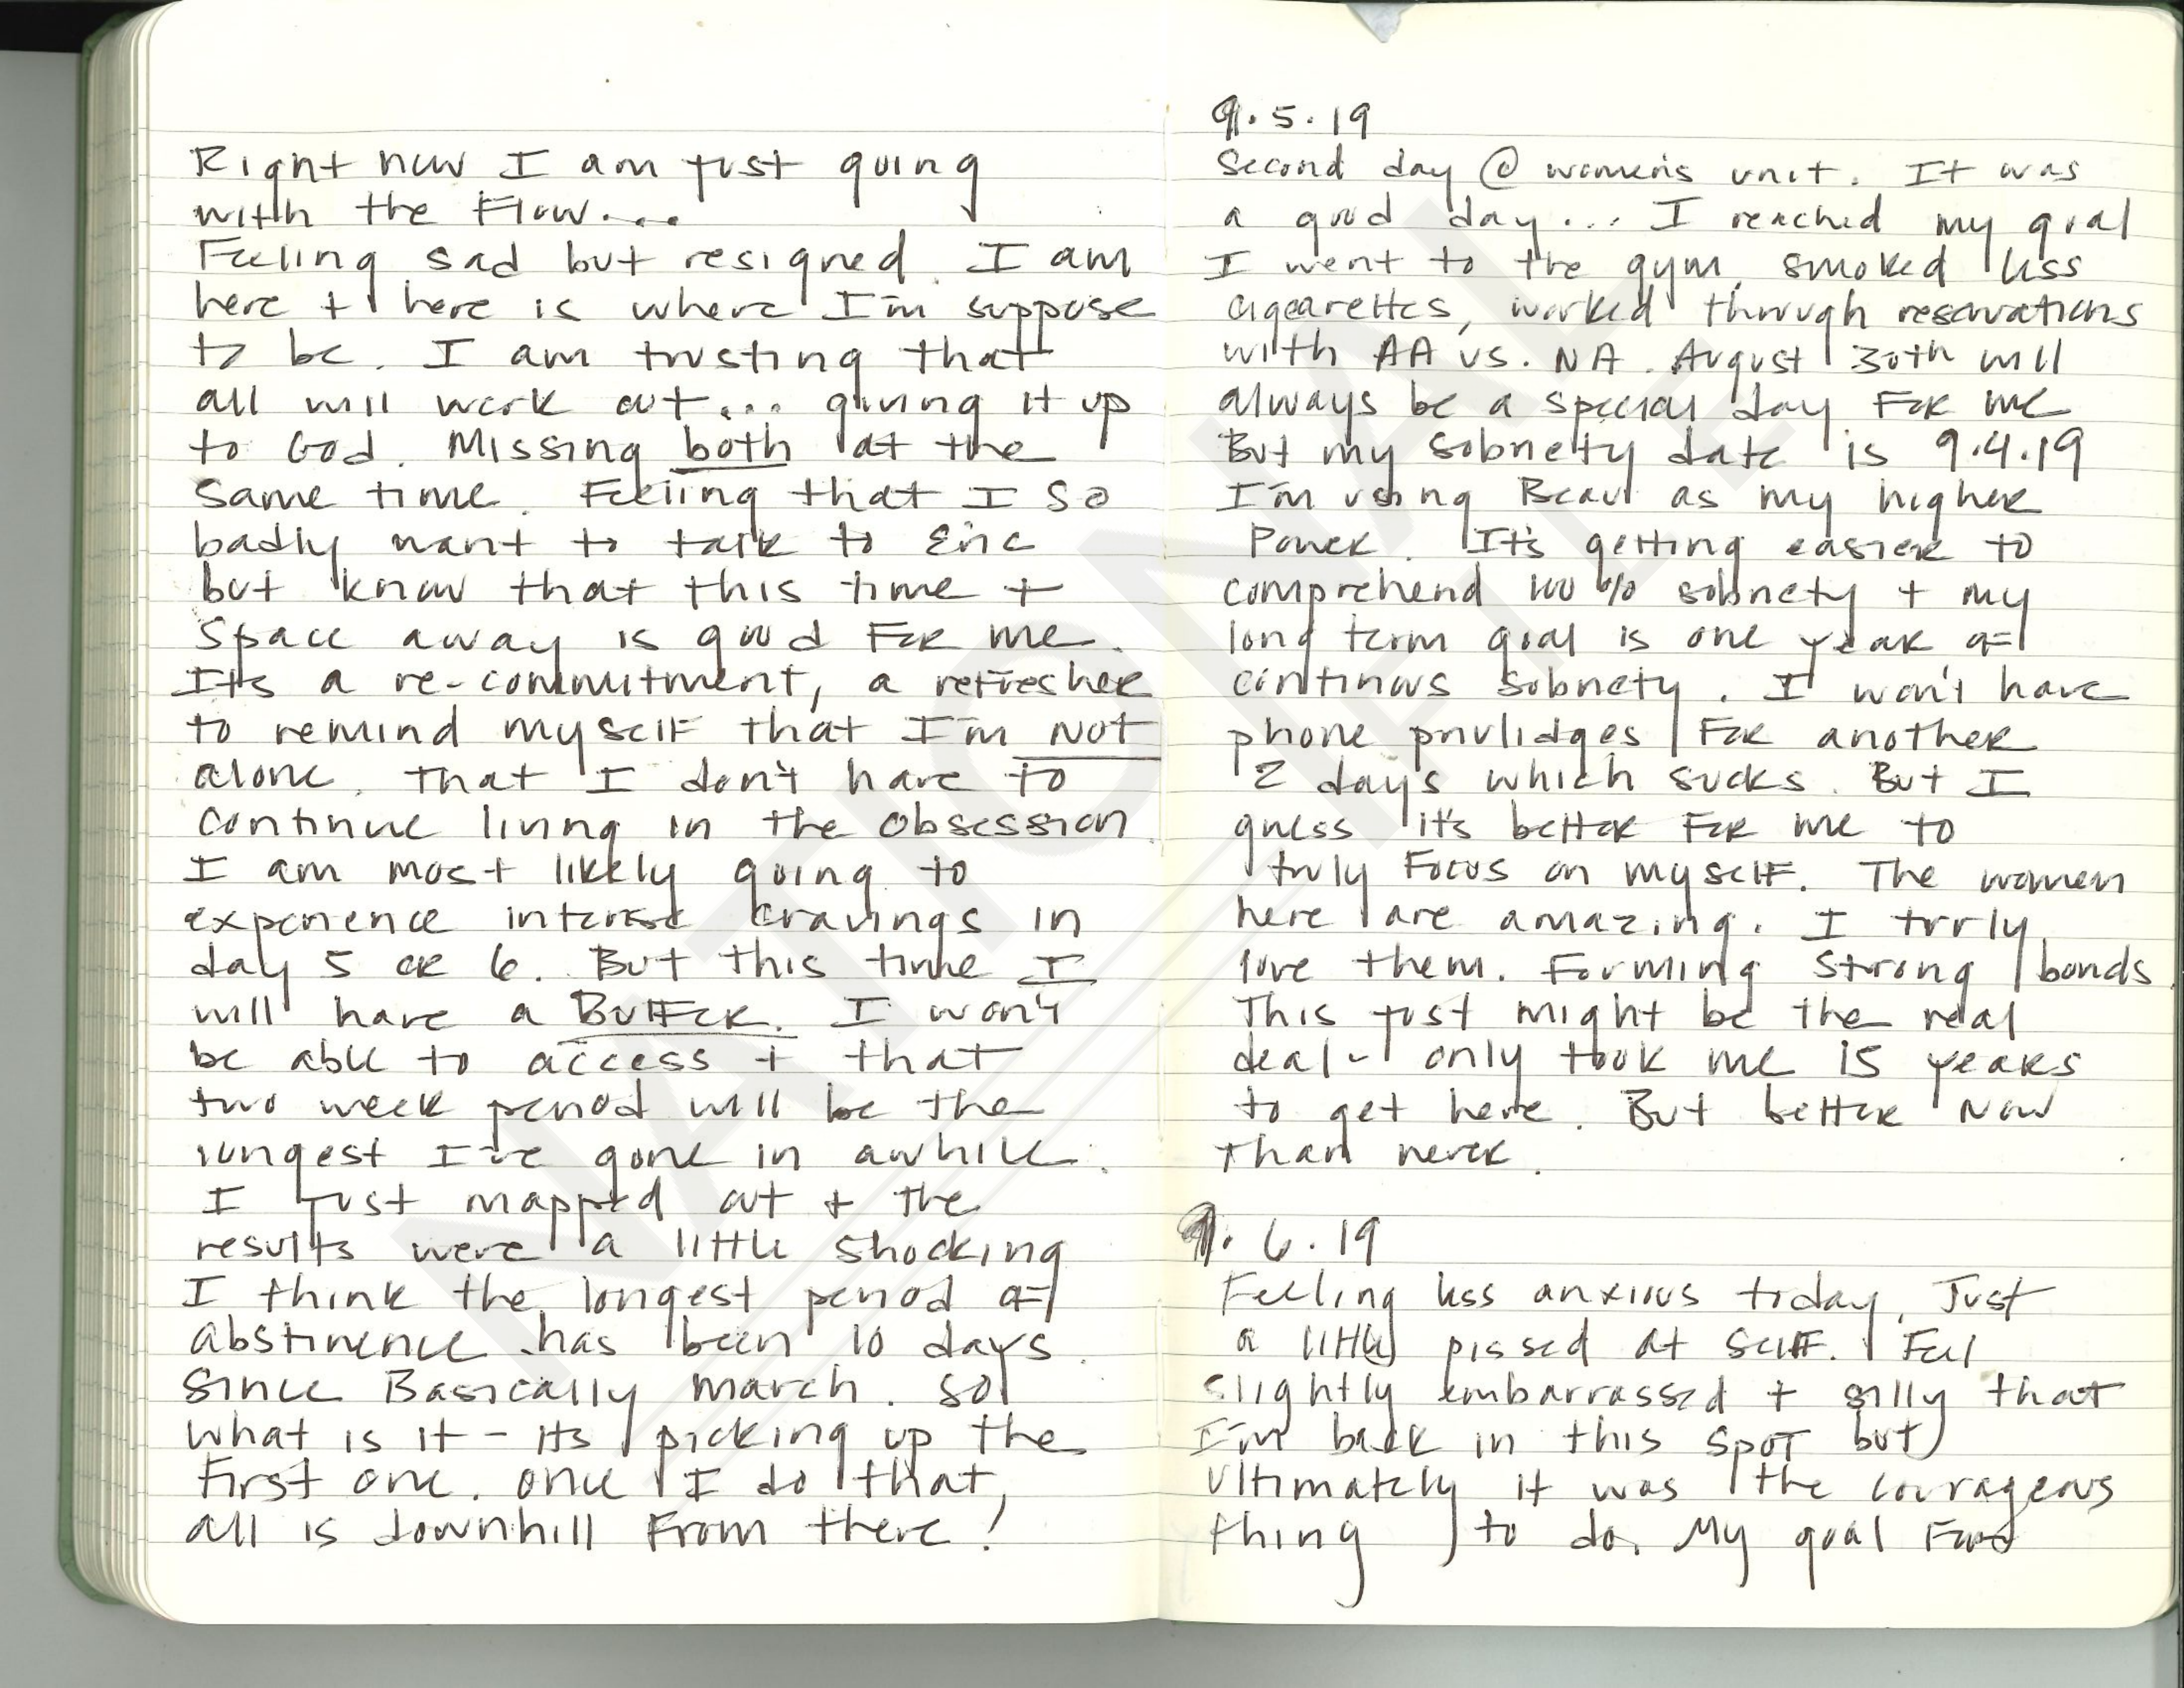 Right now I am just going
with the Flow....
Feeling sad but resigned. I am
here + here is where I'm suppose
to be. I am trusting that
all will work out... giving it up
to God. Missing both at the
same time. Feeling that I so
badly want to talk to Eric
but know that this time +
space away is good For me.
It's a re-commitment, a refresher
to remind myself that I'm NOT
alone. That I don't have to
continue living in the obsession.
I am most likely going to
experience intense cravings in
day 5 or 6. But this time I
will have a BUFFer. I won't
be able to access + that
two week period will be the
longest I've gone in awhile.
I just mapped out + the
results were a little shocking
I think the longest period of
abstinence has been 10 days
since Basically march. So
what is it - its picking up the
First one. once I do that,
all is downhill From there!
9.5.19
Second day @ women's unit. It was
a good day... I reached my goal
I went to the gym, smoked less
cigearettes, worked through reservations
with AA vs. NA. August 30th will
always be a special day For me
But my sobriety date is 9.4.19
I'm using Beau as my higher
Power. It's getting easier to
comprehend 100% sobriety + my
long term goal is one year of
continous sobriety. I won't have
phone privlidges For another
2 days which sucks. But I
guess it's better For me to
truly Focus on myself. The women
here are amazing. I truly
love them. Forming strong bonds.
This just might be the real
deal - only took me 15 years
to get here. But better Now
than never.
9.6.19
Feeling less anxious today. Just
a little pissed at self. Feel
slightly embarrassed + silly that
I'm back in this spot but
ultimately it was the courageous
thing to do. My goal
NATIONAL
FILE